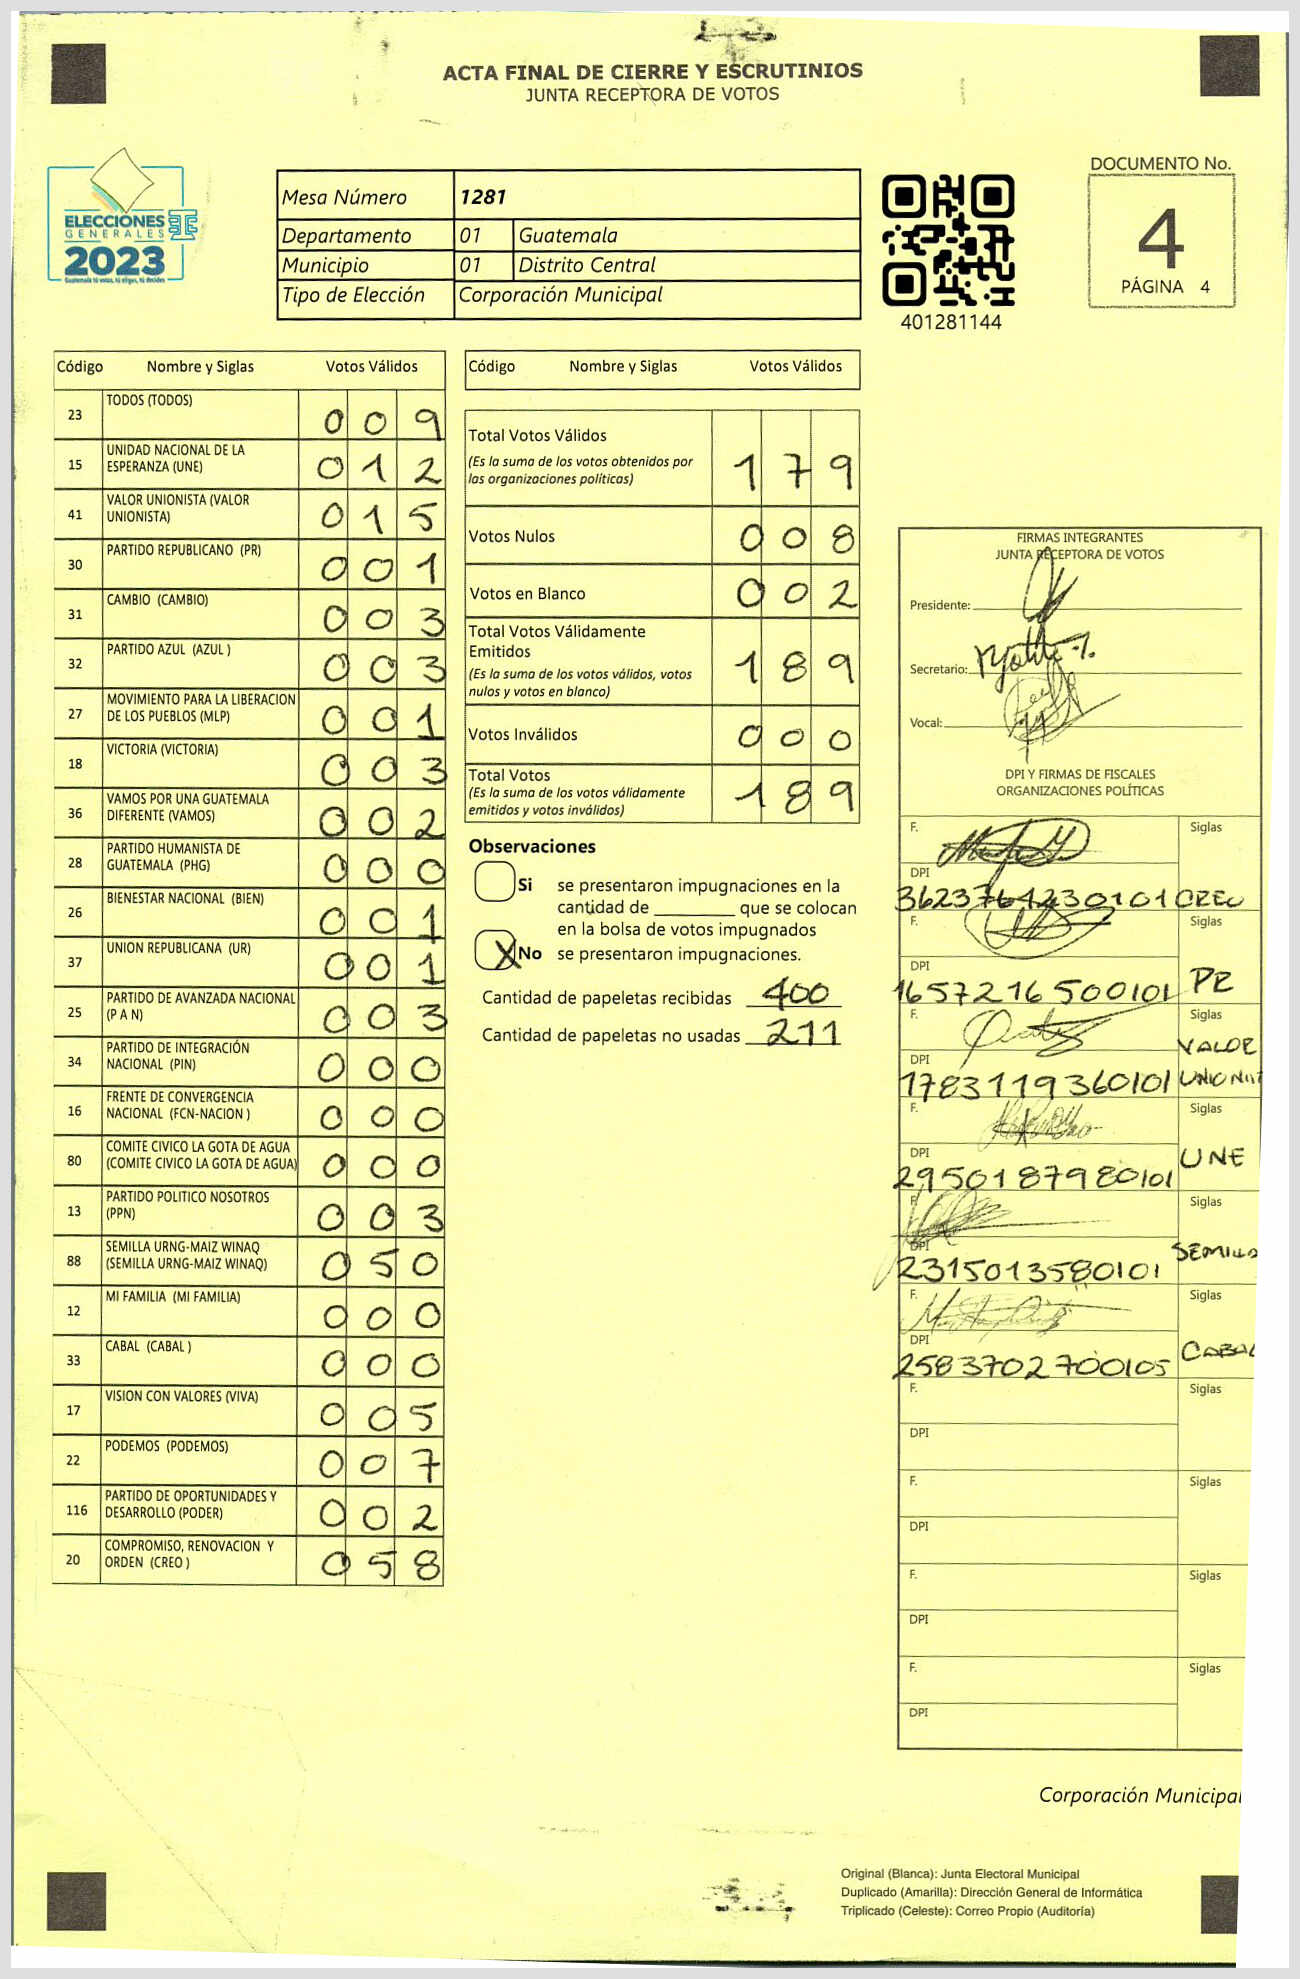 ACTA FINAL DE CIERRE Y ESCRUTINIOS
JUNTA RECEPTORA DE VOTOS
ELECCIONES
GENERALES
2023
Guatemala tú votas, tú eliges, tú decides
Mesa Número 1281
Departamento 01 Guatemala
Municipio 01 Distrito Central
Tipo de Elección Corporación Municipal
401281144
DOCUMENTO No.
4
PÁGINA 4
Código Nombre y Siglas Votos Válidos
23 TODOS (TODOS) 0 0 9
15 UNIDAD NACIONAL DE LA
ESPERANZA (UNE) 0 1 2
41 VALOR UNIONISTA (VALOR
UNIONISTA) 0 1 5
30 PARTIDO REPUBLICANO (PR) 0 0 1
31 CAMBIO (CAMBIO) 0 0 3
32 PARTIDO AZUL (AZUL ) 0 0 3
27 MOVIMIENTO PARA LA LIBERACION
DE LOS PUEBLOS (MLP) 0 0 1
18 VICTORIA (VICTORIA) 0 0 3
36 VAMOS POR UNA GUATEMALA
DIFERENTE (VAMOS) 0 0 2
28 PARTIDO HUMANISTA DE
GUATEMALA (PHG) 0 0 0
26 BIENESTAR NACIONAL (BIEN) 0 0 1
37 UNION REPUBLICANA (UR) 0 0 1
25 PARTIDO DE AVANZADA NACIONAL
(P A N) 0 0 3
34 PARTIDO DE INTEGRACIÓN
NACIONAL (PIN) 0 0 0
16 FRENTE DE CONVERGENCIA
NACIONAL (FCN-NACION ) 0 0 0
80 COMITE CIVICO LA GOTA DE AGUA
(COMITE CIVICO LA GOTA DE AGUA) 0 0 0
13 PARTIDO POLITICO NOSOTROS
(PPN) 0 0 3
88 SEMILLA URNG-MAIZ WINAQ
(SEMILLA URNG-MAIZ WINAQ) 0 5 0
12 MI FAMILIA (MI FAMILIA) 0 0 0
33 CABAL (CABAL ) 0 0 0
17 VISION CON VALORES (VIVA) 0 0 5
22 PODEMOS (PODEMOS) 0 0 7
116 PARTIDO DE OPORTUNIDADES Y
DESARROLLO (PODER) 0 0 2
20 COMPROMISO, RENOVACION Y
ORDEN (CREO ) 0 5 8
Código Nombre y Siglas Votos Válidos
Total Votos Válidos
(Es la suma de los votos obtenidos por
las organizaciones políticas) 1 7 9
Votos Nulos 0 0 8
Votos en Blanco 0 0 2
Total Votos Válidamente
Emitidos
(Es la suma de los votos válidos, votos
nulos y votos en blanco) 1 8 9
Votos Inválidos 0 0 0
Total Votos
(Es la suma de los votos válidamente
emitidos y votos inválidos) 1 8 9
Observaciones
Si se presentaron impugnaciones en la
cantidad de ________ que se colocan
en la bolsa de votos impugnados
X No se presentaron impugnaciones.
Cantidad de papeletas recibidas 400
Cantidad de papeletas no usadas 211
FIRMAS INTEGRANTES
JUNTA RECEPTORA DE VOTOS
Presidente:
Secretario:
Vocal:
DPI Y FIRMAS DE FISCALES
ORGANIZACIONES POLÍTICAS
F. Siglas
DPI
3623764230101 CREO
F. Siglas
DPI
1657216500101 PR
F. Siglas
DPI VALOR
1783119360101 UNIONIST
F. Siglas
DPI
2950187980101 UNE
F. Siglas
DPI
2315013580101 SEMILLA
F. Siglas
DPI
2583702700105 CABAL
F. Siglas
DPI
F. Siglas
DPI
F. Siglas
DPI
F. Siglas
DPI
Corporación Municipal
Original (Blanca): Junta Electoral Municipal
Duplicado (Amarilla): Dirección General de Informática
Triplicado (Celeste): Correo Propio (Auditoría)